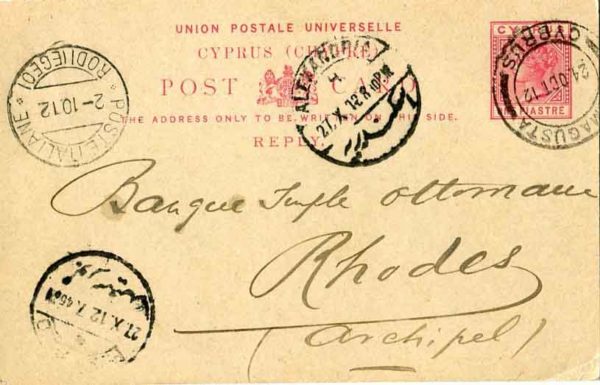 UNION POSTALE UNIVERSELLE
CYPRUS (CHYPRE)
POST CARD
THE ADDRESS ONLY TO BE WRITTEN ON THIS SIDE.
REPLY.
CYPRUS
PIASTRE
FAMAGUSTA
CYPRUS
OCT 12
ALEXANDRIA
27.X.12.
POSTE ITALIANE
RODI (EGEO)
2-10.12
Banque Imple Ottomane
Rhodes
(Archipel)
27.X.12.7